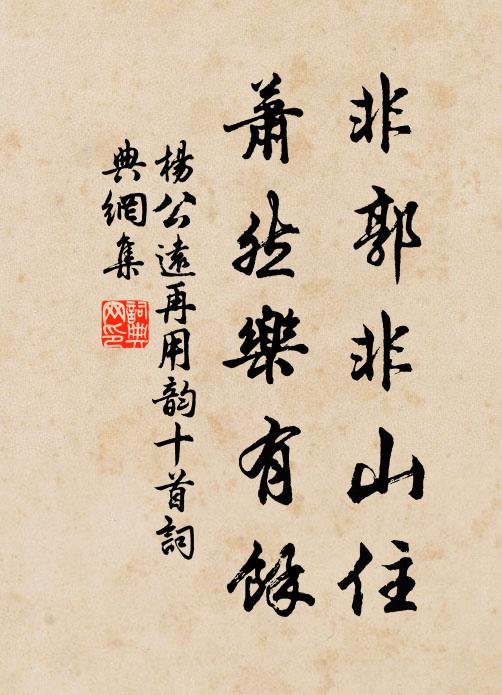 非郭非山住
蕭然樂有餘
楊公遠再用韵十首詞
典網集
詞典
网印